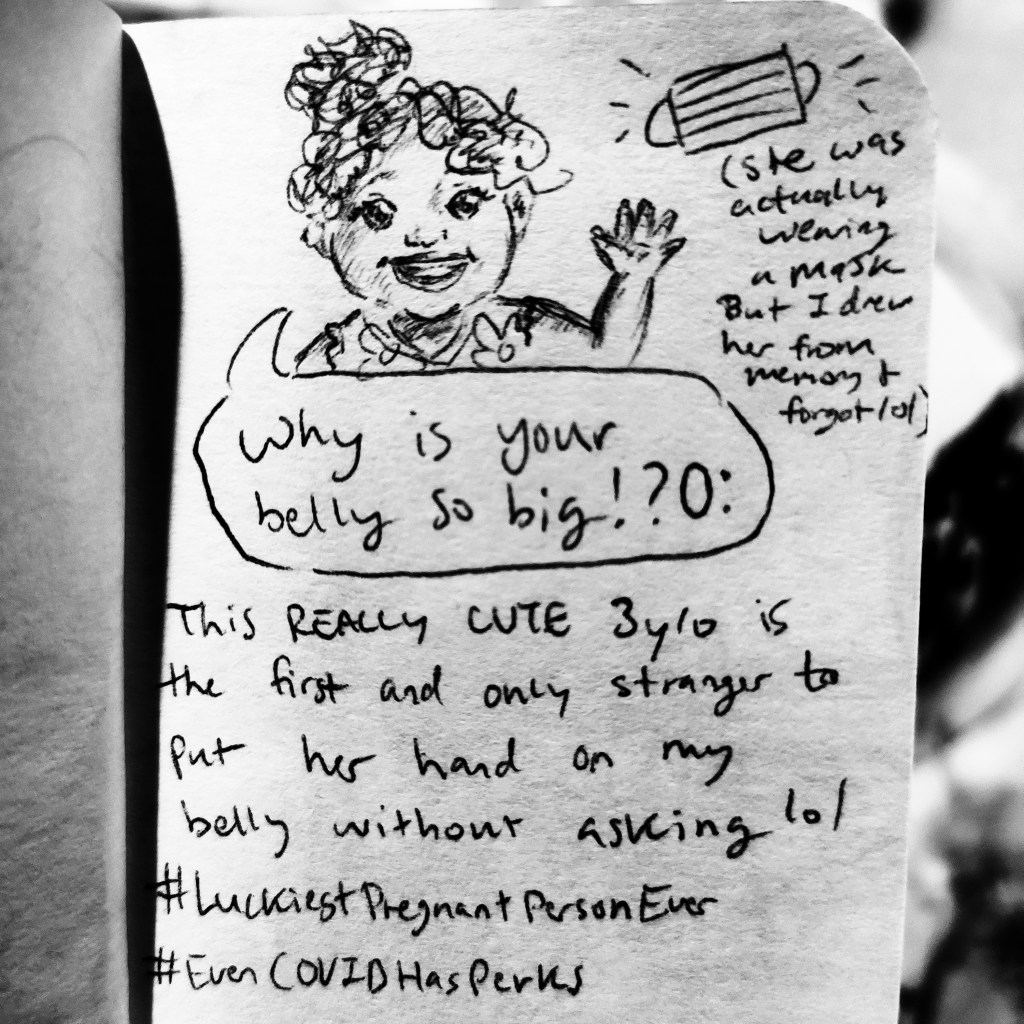 (she was
actually
wearing
a mask
But I drew
her from
memory +
forgot lol)
Why is your
belly so big!?O:
This REALLY CUTE 3y/o is
the first and only stranger to
put her hand on my
belly without asking lol
#LuckiestPregnantPersonEver
#EvenCOVIDHasPerks